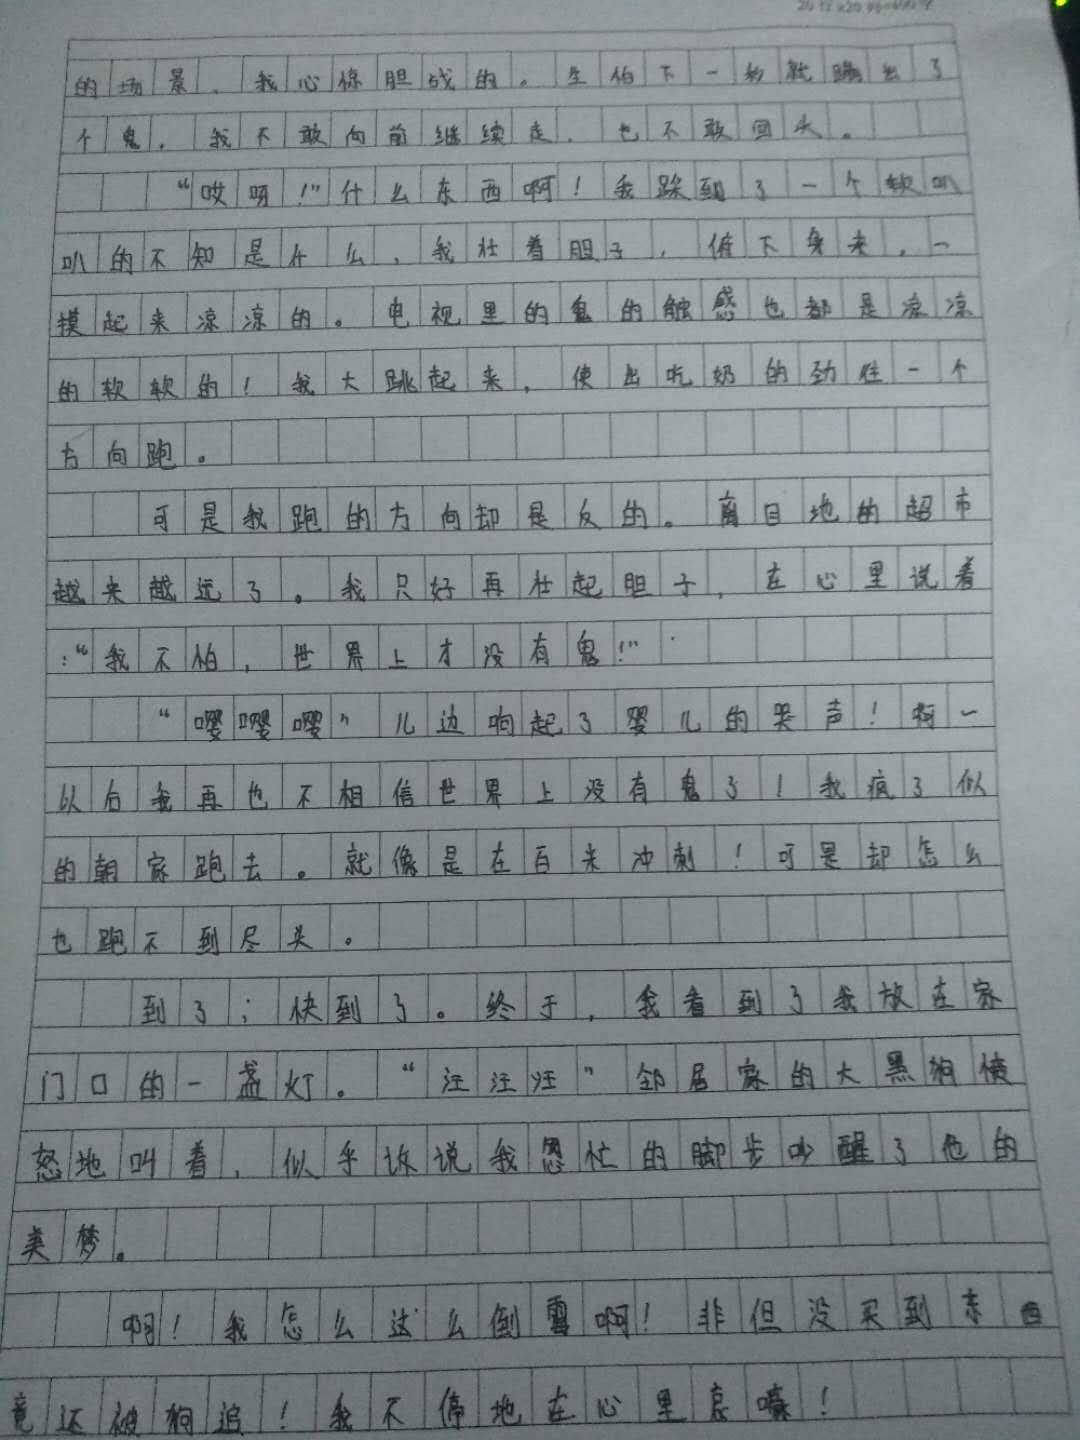 的场景，我心惊胆战的。生怕下一秒就蹦出了
个鬼。我不敢向前继续走，也不敢回头。
“哎呀！”什么东西啊！我跺到了一个软叭
叭的不知是什么，我壮着胆子，俯下身来，一
摸起来凉凉的。电视里的鬼的触感也都是凉凉
的软软的！我大跳起来，使出吃奶的劲往一个
方向跑。
可是我跑的方向却是反的。离目地的超市
越来越远了。我只好再壮起胆子，在心里说着
：“我不怕，世界上才没有鬼！”
“嘤嘤嘤”儿边响起了婴儿的哭声！啊一
以后我再也不相信世界上没有鬼了！我疯了似
的朝家跑去。就像是在百米冲刺！可是却怎么
也跑不到尽头。
到了；快到了。终于，我看到了我放在家
门口的一盏灯。“汪汪汪”邻居家的大黑狗愤
怒地叫着，似乎诉说我忽忙的脚步吵醒了他的
美梦。
啊！我怎么这么倒霉啊！非但没买到东西
竟还被狗追！我不停地在心里哀嚎！